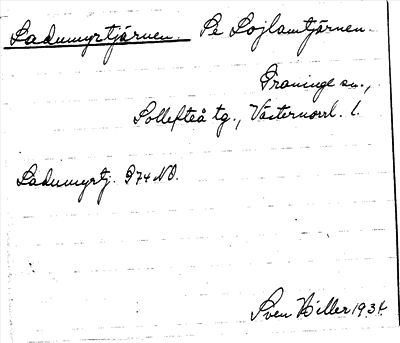 Ladumyrtjärnen. Se Lojlamtjärnen.
Graninge sn.,
Sollefteå tg., Västernorrl. l.
Ladumyrtj. G74 NO.
Sven Hiller 1934